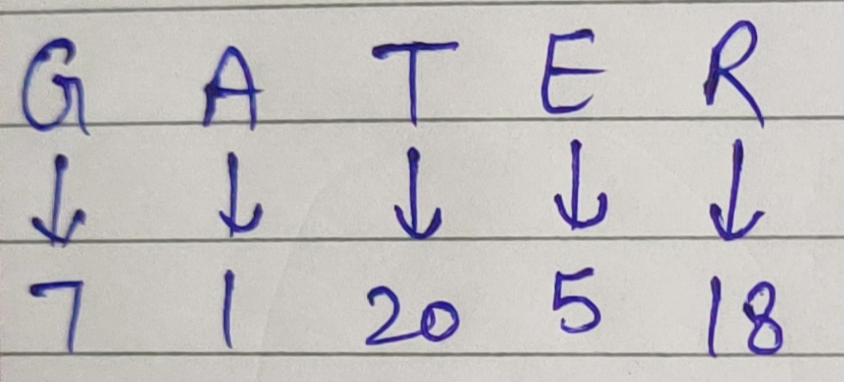 G A T E R
↓ ↓ ↓ ↓ ↓
7 1 20 5 18